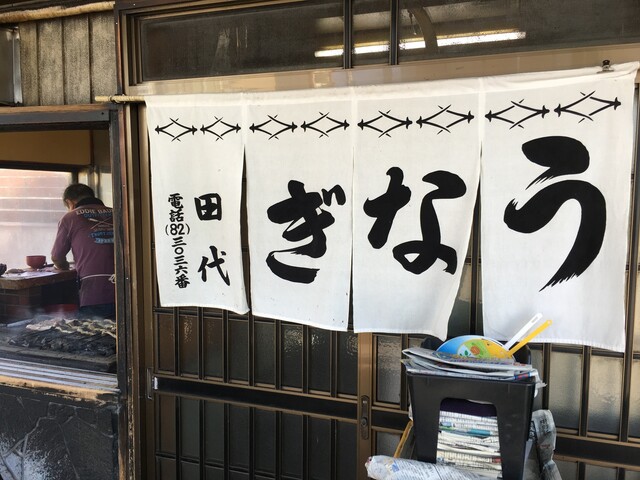 うなぎ
田代
電話(82)三〇三六番
EDDIE BAUER